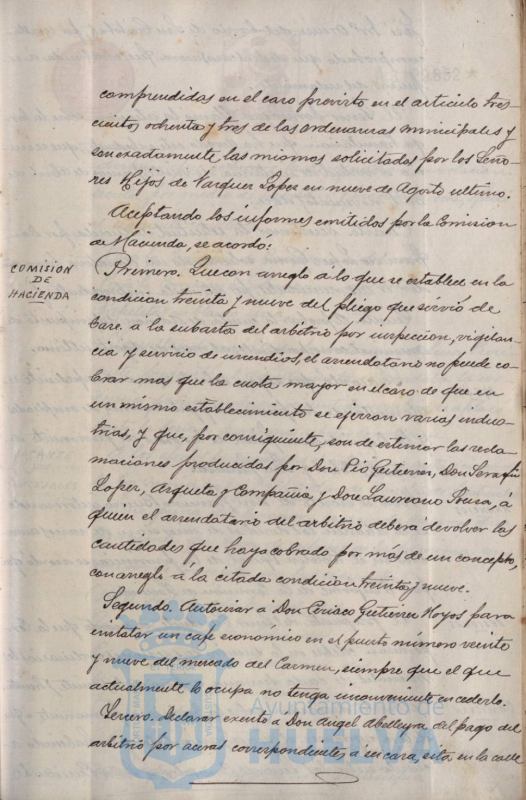 comprendidas en el caso previsto en el articulo tres-
cientos ochenta y tres de las ordenanzas municipales y
son exadamente las mismas solicitadas por los Seño-
res Hijos de Vazquez Lopez en nueve de Agosto ultimo.
Aceptando los informes emitidos por la Comision
de Hacienda, se acordó:
COMISION
DE
HACIENDA
Primero. Que con arreglo á lo que se establece en la
condicion treinta y nueve del pliego que sirvió de
base á la subasta del arbitrio por inspeccion, vigilan-
cia y servicio de incendios, el arrendatario no puede co-
brar mas que la cuota mayor en el caso de que en
un mismo establecimiento se ejerzan varias indus-
trias, y que, por consiguiente, son de estimar las recla-
maciones producidas por Don Pio Gutierrez, Don Serafin
Lopez, Arqueta y Compañia y Don Laureano Sousa, á
quien el arrendatario del arbitrio deberá devolver las
cantidades que haya cobrado por más de un concepto,
con arreglo á la citada condicion treinta y nueve.
Segundo. Autorizar á Don Ciriaco Gutierrez Hoyos para
instalar un cafe económico en el puesto número veinte
y nueve del mercado del Carmen, siempre que el que
actualmente lo ocupa no tenga inconveniente en cederlo.
Tercero. Declarar exento á Don Angel Abelleyra del pago del
arbitrio por aceras correspondientes á su casa, sita en la calle
Ayuntamiento de
HUELVA